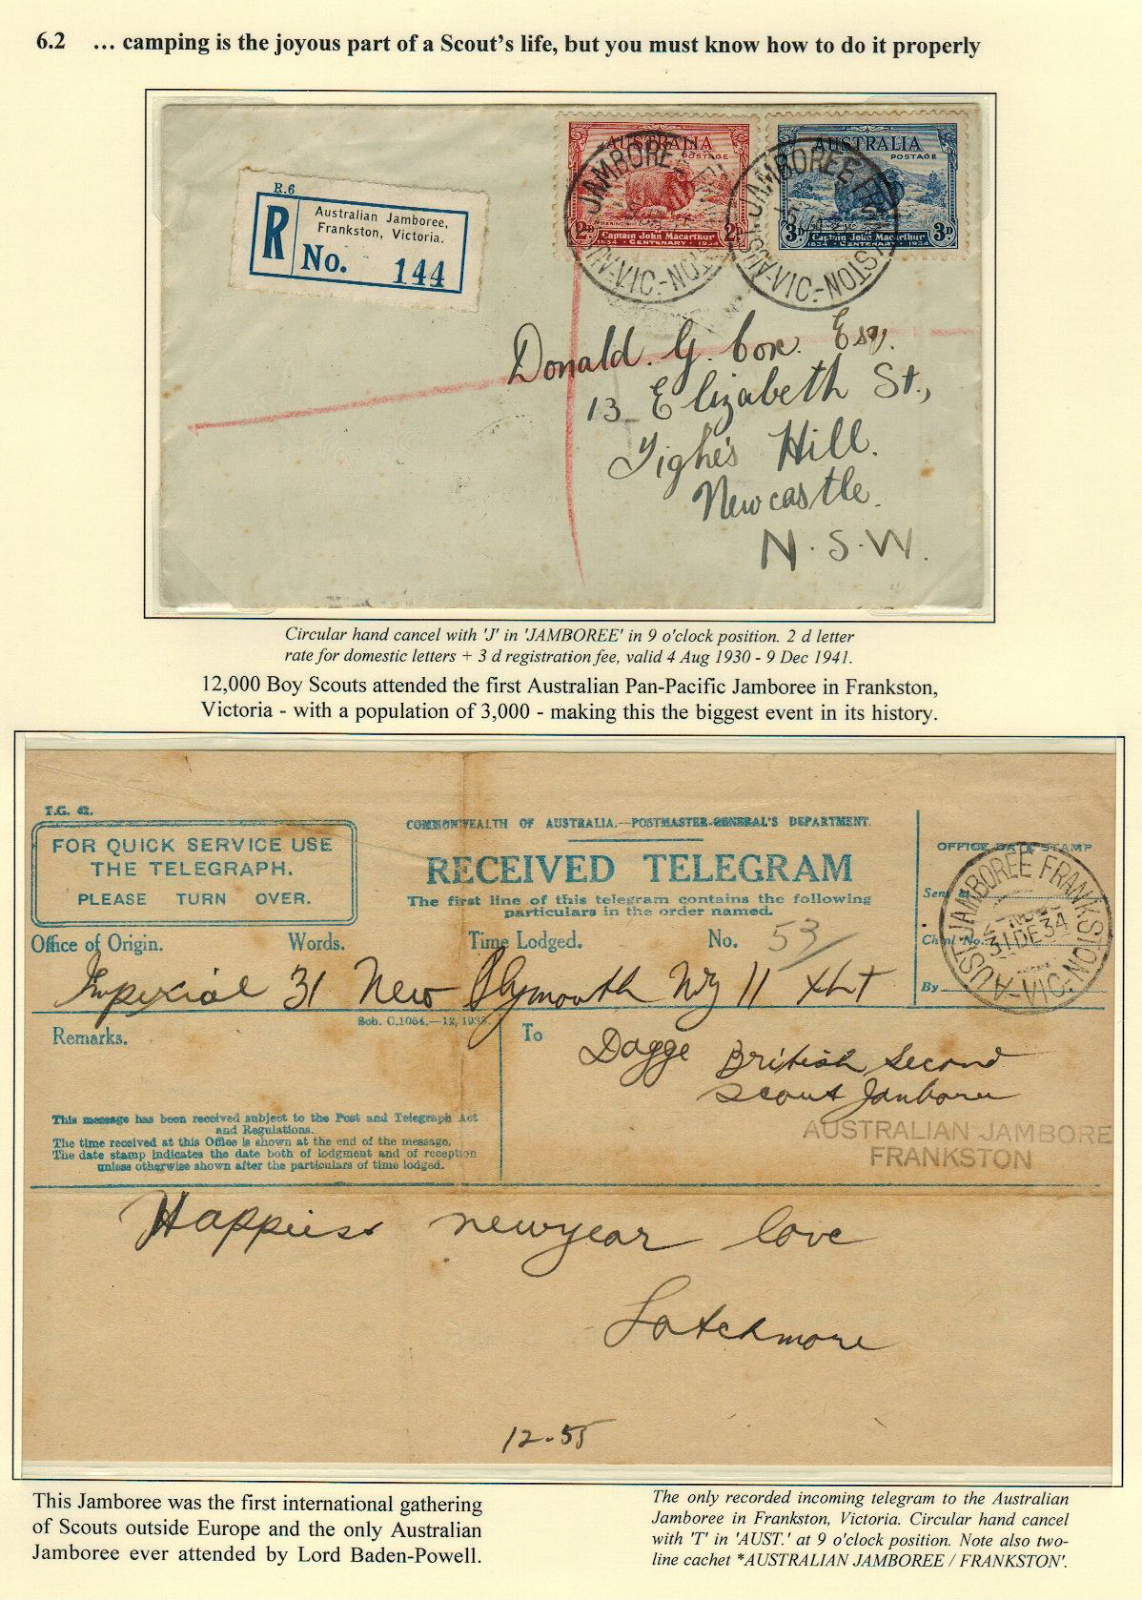 6.2 ... camping is the joyous part of a Scout's life, but you must know how to do it properly
R.6
R
Australian Jamboree,
Frankston, Victoria.
No. 144
AUSTRALIA
POSTAGE
2D 2D
Captain John Macarthur
1834 - CENTENARY - 1934
AUSTRALIA
POSTAGE
3D 3D
Captain John Macarthur
1834 - CENTENARY - 1934
JAMBOREE
VIC.
JAMBOREE
VIC.
Donald. G. Cox. Esq.
13 Elizabeth St.,
Tighe's Hill.
Newcastle.
N.S.W.
Circular hand cancel with 'J' in 'JAMBOREE' in 9 o'clock position. 2 d letter
rate for domestic letters + 3 d registration fee, valid 4 Aug 1930 - 9 Dec 1941.
12,000 Boy Scouts attended the first Australian Pan-Pacific Jamboree in Frankston,
Victoria - with a population of 3,000 - making this the biggest event in its history.
T.G. 42.
FOR QUICK SERVICE USE
THE TELEGRAPH.
PLEASE TURN OVER.
COMMONWEALTH OF AUSTRALIA.—POSTMASTER-GENERAL'S DEPARTMENT.
RECEIVED TELEGRAM
The first line of this telegram contains the following
particulars in the order named.
OFFICE DATE STAMP
AUST. JAMBOREE FRANKSTON
31DE34
VIC.
By
Office of Origin. Words. Time Lodged. No. 53
Imperial 31 New Plymouth NZ 11
Sch. C.1084.—12,
Remarks.
To Dagge British Second
Scout Jamboree
AUSTRALIAN JAMBORE
FRANKSTON
This message has been received subject to the Post and Telegraph Act
and Regulations.
The time received at this Office is shown at the end of the message.
The date stamp indicates the date both of lodgment and of reception
unless otherwise shown after the particulars of time lodged.
Happiest newyear love
Latchmore
12-55
This Jamboree was the first international gathering
of Scouts outside Europe and the only Australian
Jamboree ever attended by Lord Baden-Powell.
The only recorded incoming telegram to the Australian
Jamboree in Frankston, Victoria. Circular hand cancel
with 'T' in 'AUST.' at 9 o'clock position. Note also two-
line cachet *AUSTRALIAN JAMBOREE / FRANKSTON'.